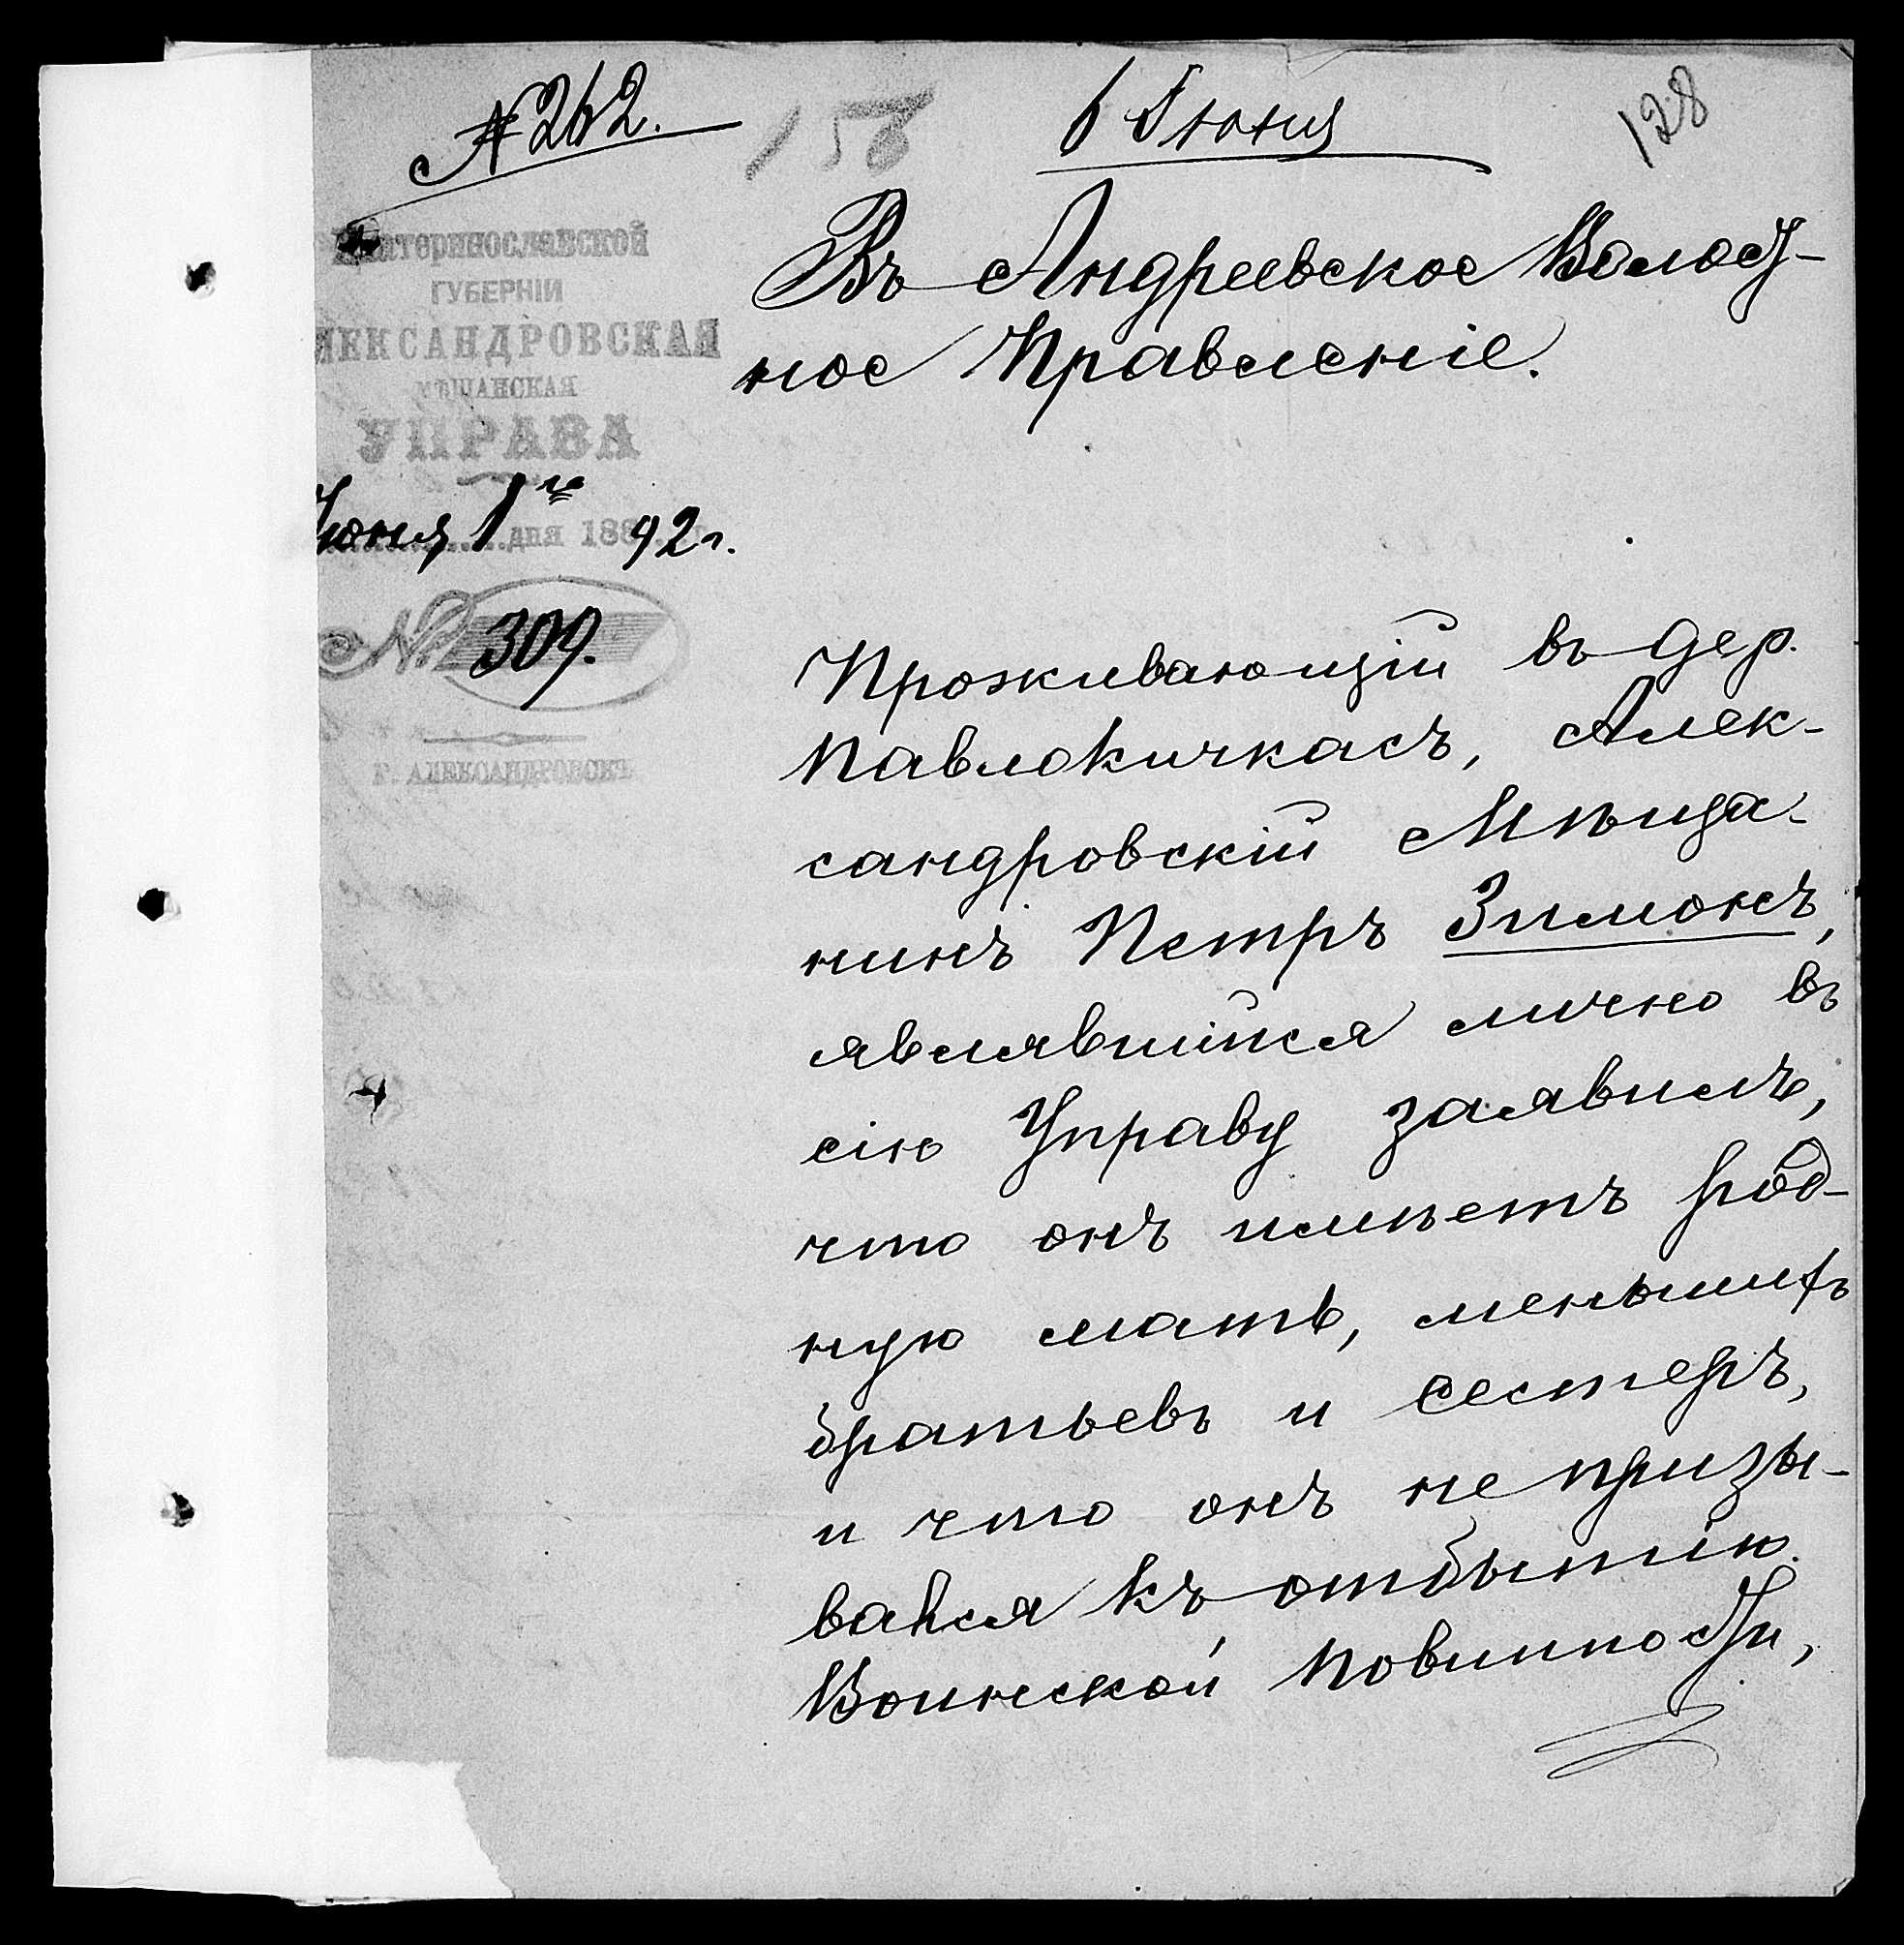 № 262.
158
6 Іюня
128
Екатеринославской
ГУБЕРНІИ
АЛЕКСАНДРОВСКАЯ
МѢЩАНСКАЯ
УПРАВА
Іюня 1 дня 1892 г.
№ 309.
Г. АЛЕКСАНДРОВСКЪ
Въ Андреевское Волост-
ное Правленіе.
Проживающій въ дер.
Павлокичкасъ, Алек-
сандровскій Мѣща-
нинъ Петръ Зимонъ,
являвшійся лично въ
сію Управу заявилъ,
что онъ имѣетъ род-
ную мать, меньшихъ
братьевъ и сестеръ,
и что онъ не призы-
вался къ отбытію
Воинской повинности,